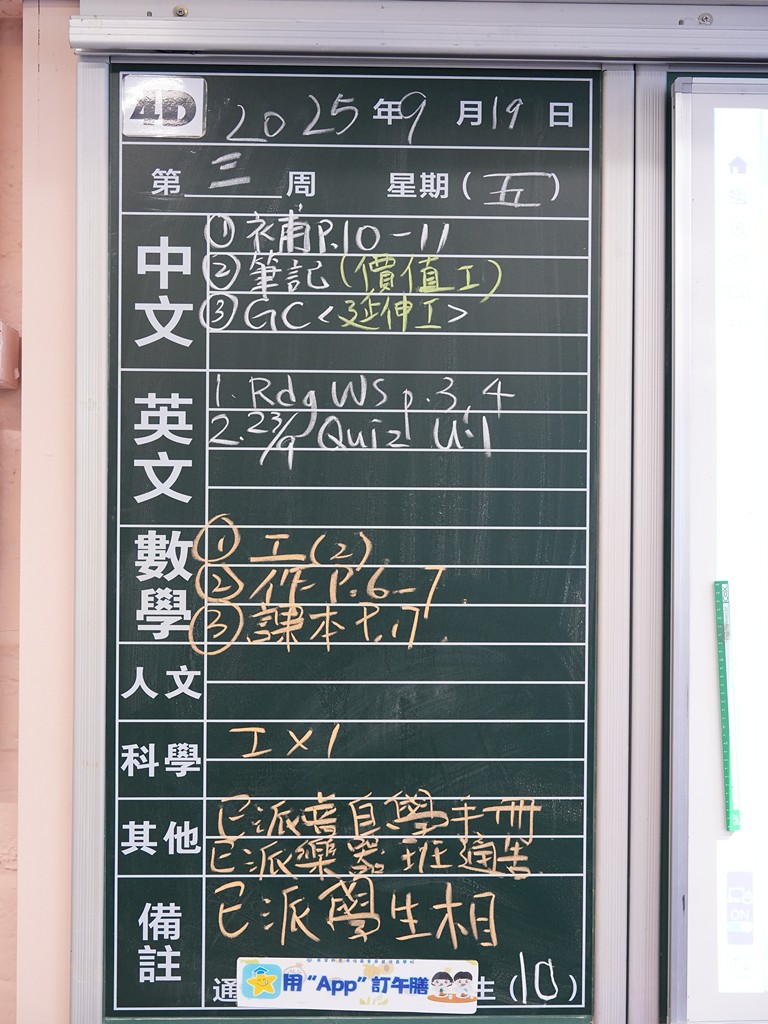 4D 2025年9月19日
第三周 星期(五)
中文
①補P.10-11
②筆記(價值工)
③GC<延伸工>
英文
1. Rdg WS p.3,4
2. 23/9 Quiz U.1
數學
①工(2)
②作P.6-7
③課本P.17
人文
科學
工×1
其他
已派普自學手冊
已派樂器班通告
備註
已派學生相
通 生(10)
用“App”訂午膳
ON